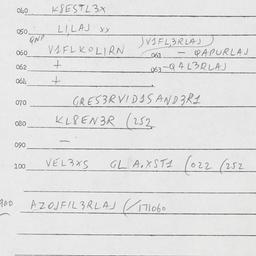 040 K8ESTL3X
050 LILAJ xx
060 V1FLKOLIRN )V1FL3RLAJ) 061 — QAPURLAJ
062 + 063 -QAL3RLAJ
064 +
070 GRES3RVID1SAND3R1
080 KL8EN3R (252
090 —
100 VEL3XS GL A.XST1 (022 (252
AZOJFIL3RLAJ (171060